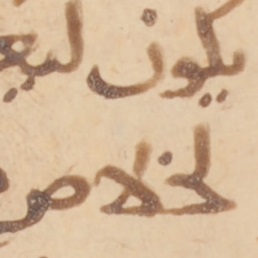 يكون ليعـ
لخلاص